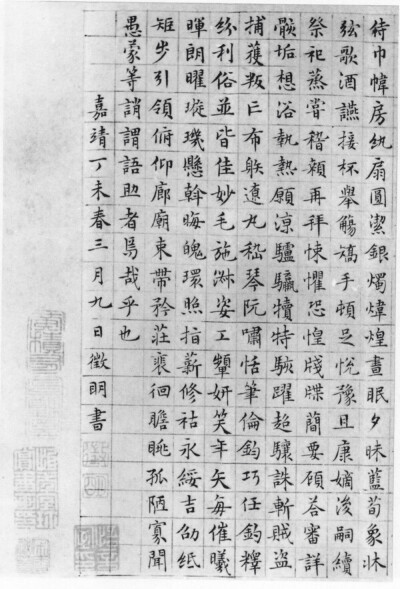 侍巾幃房紈扇圓潔銀燭煒煌晝眠夕眛藍荀象牀
弦歌酒讌接杯舉觴矯手頓足悅豫且康嫡後嗣續
祭祀蒸嘗稽顙再拜悚懼恐惶牋牒簡要顧荅審詳
骸垢想浴執熱願涼驢騾犢特駭躍超驤誅斬賊盜
捕獲叛亡布躲遼丸嵇琴阮嘯恬筆倫鈞巧任釣釋
紛利俗並皆佳妙毛施淑姿工顰妍笑年矢每催曦
暉朗曜璇璣懸斡晦魄環照指薪修祜永綏吉劭紙
矩步引領俯仰廊廟束帶矜莊裵徊瞻眺孤陋寡聞
愚蒙等誚謂語助者焉哉乎也
嘉靖丁未春三月九日徵明書